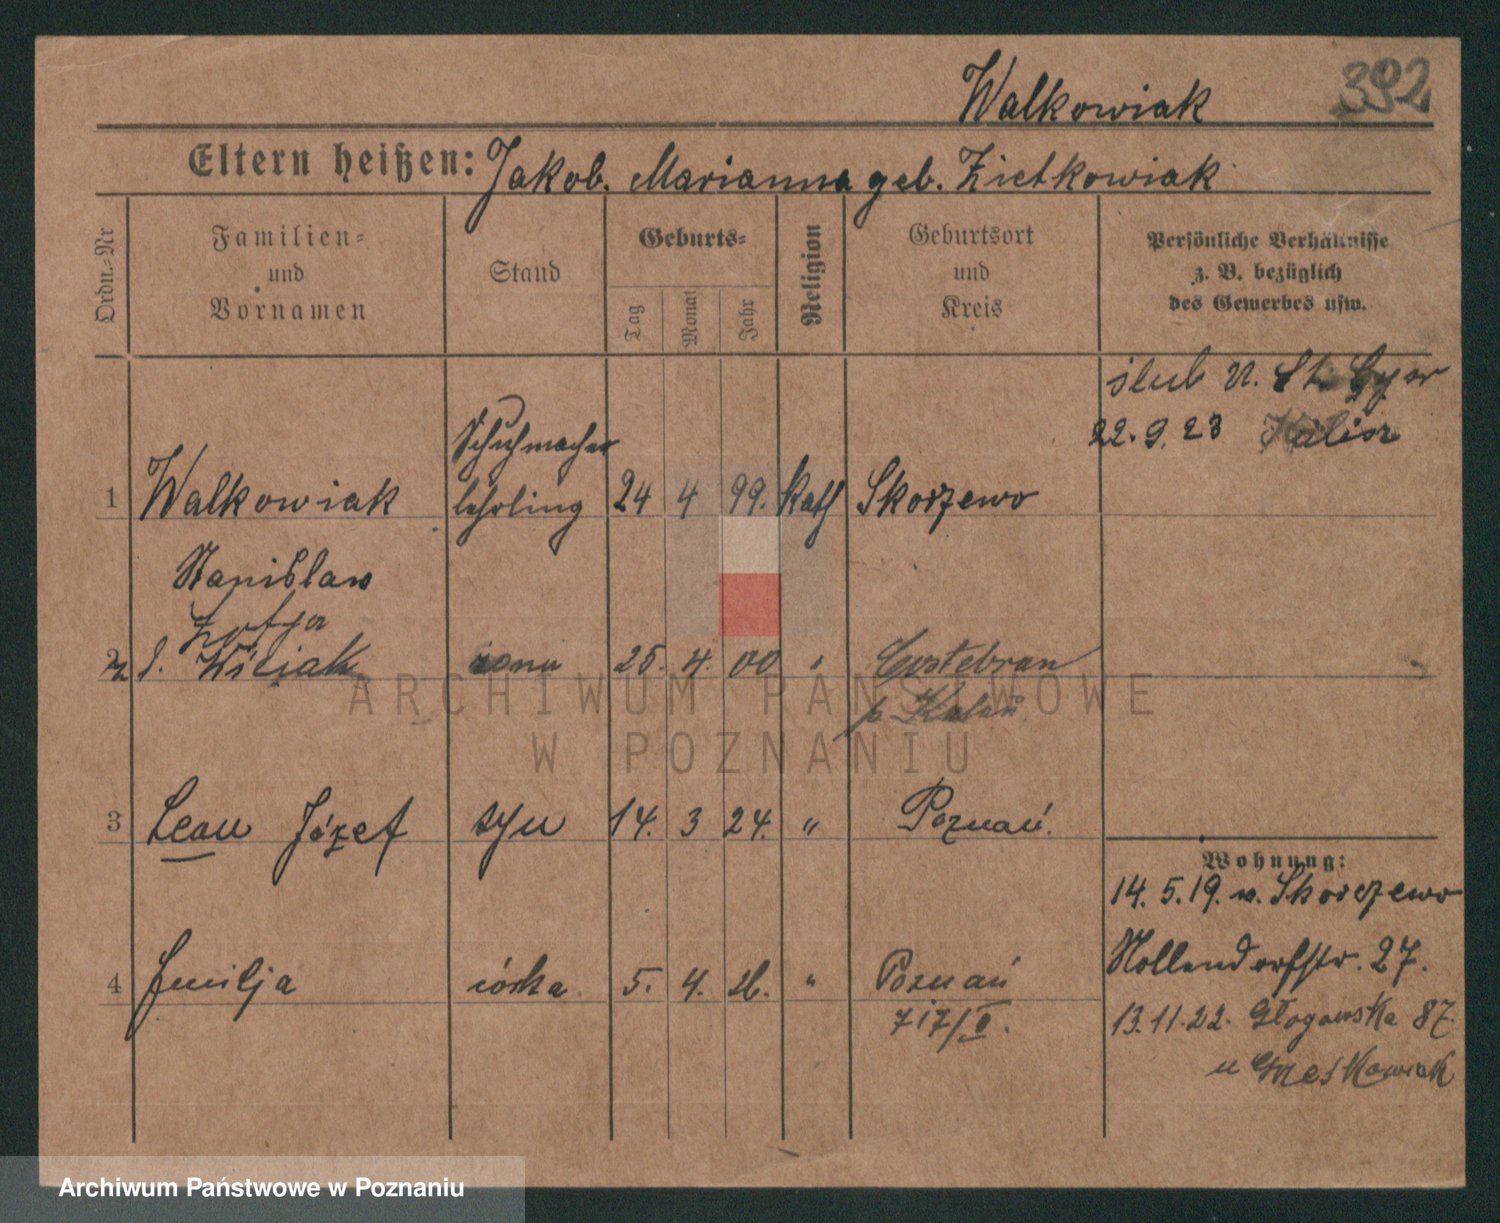 Walkowiak
392
Eltern heißen: Jakob. Marianna geb. Zietkowiak
Ordn.-Nr
Familien-
und
Vornamen
Stand
Geburts-
Tag
Monat
Jahr
Religion
Geburtsort
und
Kreis
Persönliche Verhältnisse
z. B. bezüglich
des Gewerbes usw.
ślub
22.9.23 Kalisz
Schuhmacher
1 Walkowiak lehrling 24 4 99. kath Skorzewo
Stanislaw
Zofja
2 żona 25. 4. 00 "
ARCHIWUM PAŃSTWOWE
W POZNANIU
3 Leon Józef syn 14. 3 24. " Poznań.
Wohnung:
14.5.19. v. Skorzewo
Nollendorfstr. 27.
4 Emilja córka 5. 4. 26. " Poznań
717/II.
13.11.22. Głogowska 87.
Archiwum Państwowe w Poznaniu